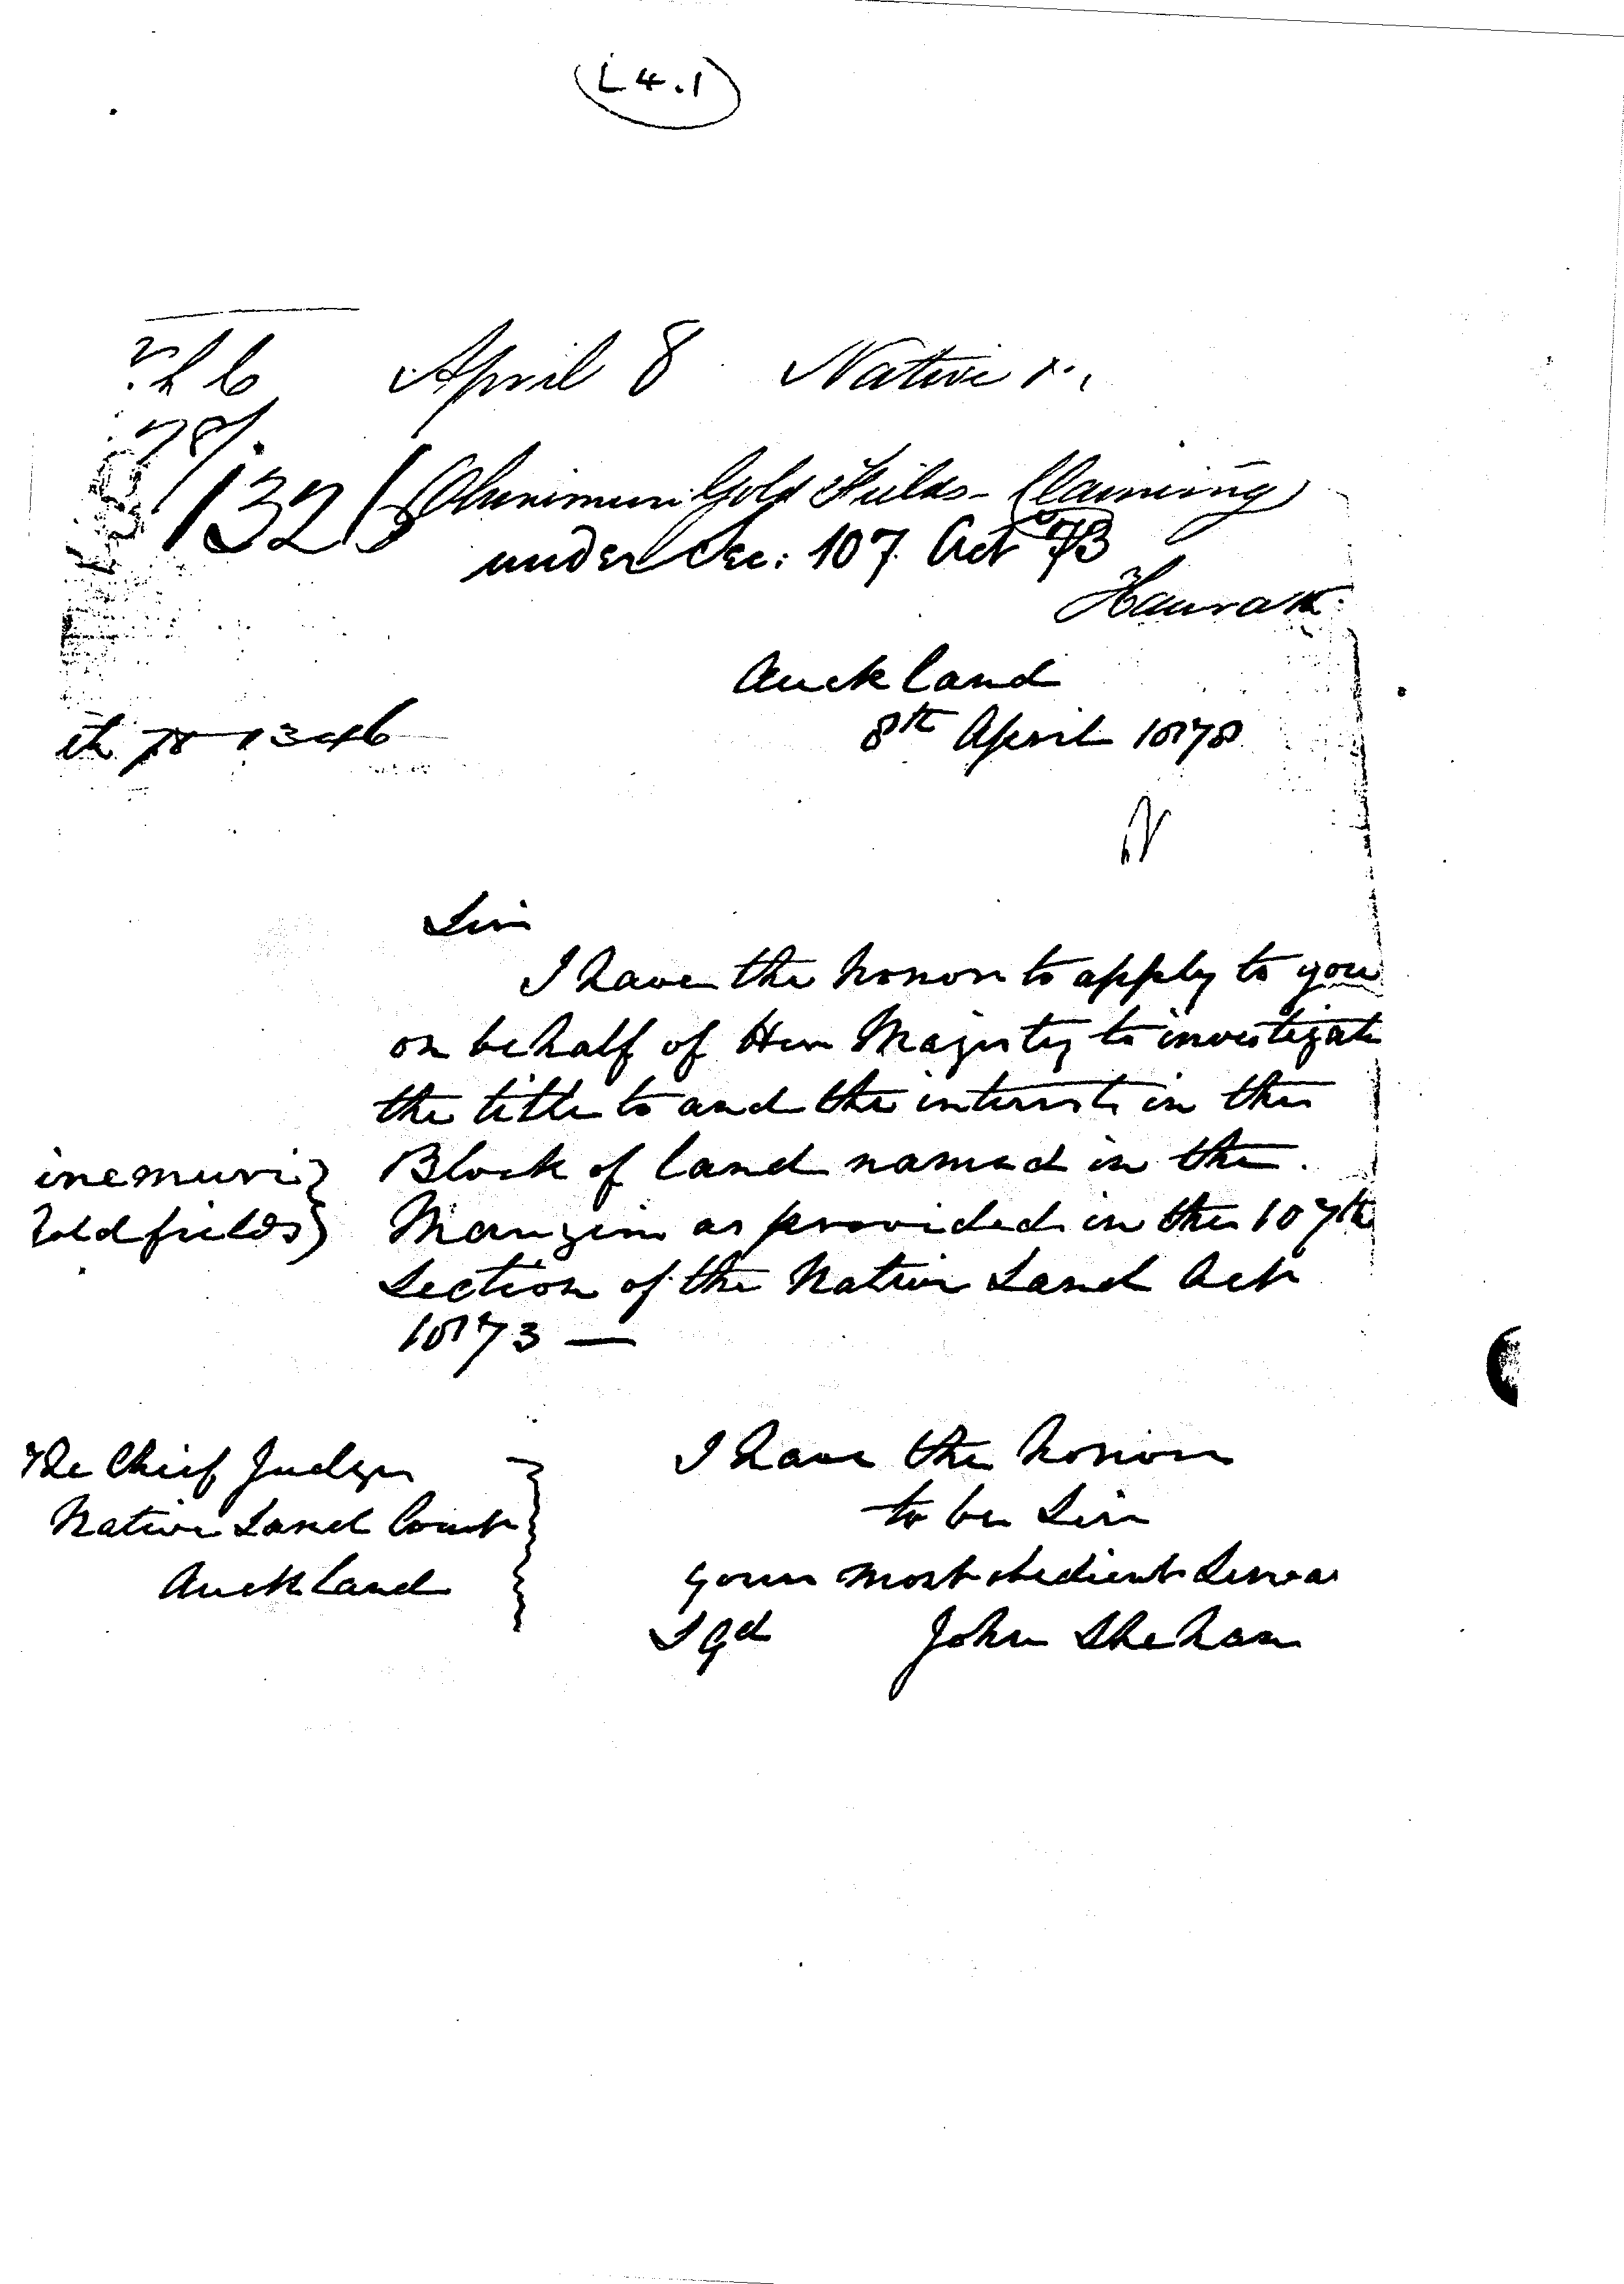 L4.1
April 8 Native
78/
1326 Ohinemuri Gold Fields - Claiming
under Sec: 107 Act 73
Haurak
Auckland
8th April 1878
78-1346
Sir
I have the honor to apply to you
on behalf of Her Majesty to investigate
the title to and the interests in the
inemuri } Block of land named in the
oldfields } Margin as provided in the 107th
Section of the Native Land Act
1873 —
The Chief Judge
Native Land Court
Auckland
I have the honor
to be Sir
your most obedient Serva
Sgd John Sheehan